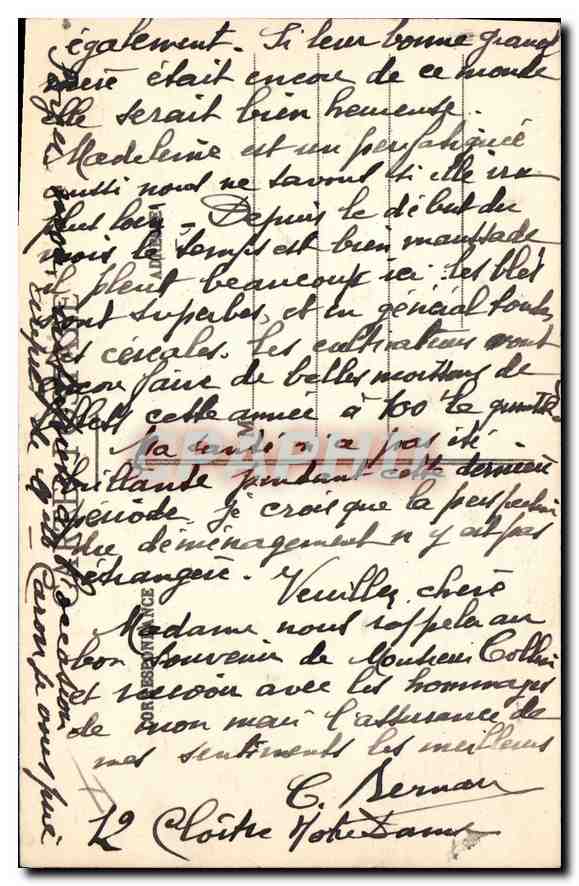 également. Si leur bonne grand
mère était encore de ce monde
elle serait bien heureuse.
Madeleine est un peu fatiguée
aussi nous ne savons si elle ira
plus loin - Depuis le début du
mois le temps est bien maussade
il pleut beaucoup ici. les blés
sont superbes, et en général toutes
les céréales. Les cultivateurs vont
encore faire de belles moissons de
cette année à 100 le
Ma santé n'a pas été
brillante pendant cette dernière
période. je crois que la perspective
du déménagement n'y est pas
étrangère. Veuillez, chère
Madame nous rappeler au
bon souvenir de Monsieur
et recevoir avec les hommages
de mon mari l'assurance de
mes sentiments les meilleurs
C.
12 Cloître Notre Dame
l'occasion
je vous prie
CORRESPONDANCE
ADRESSE
CARTE POSTALE
CPAPHIL